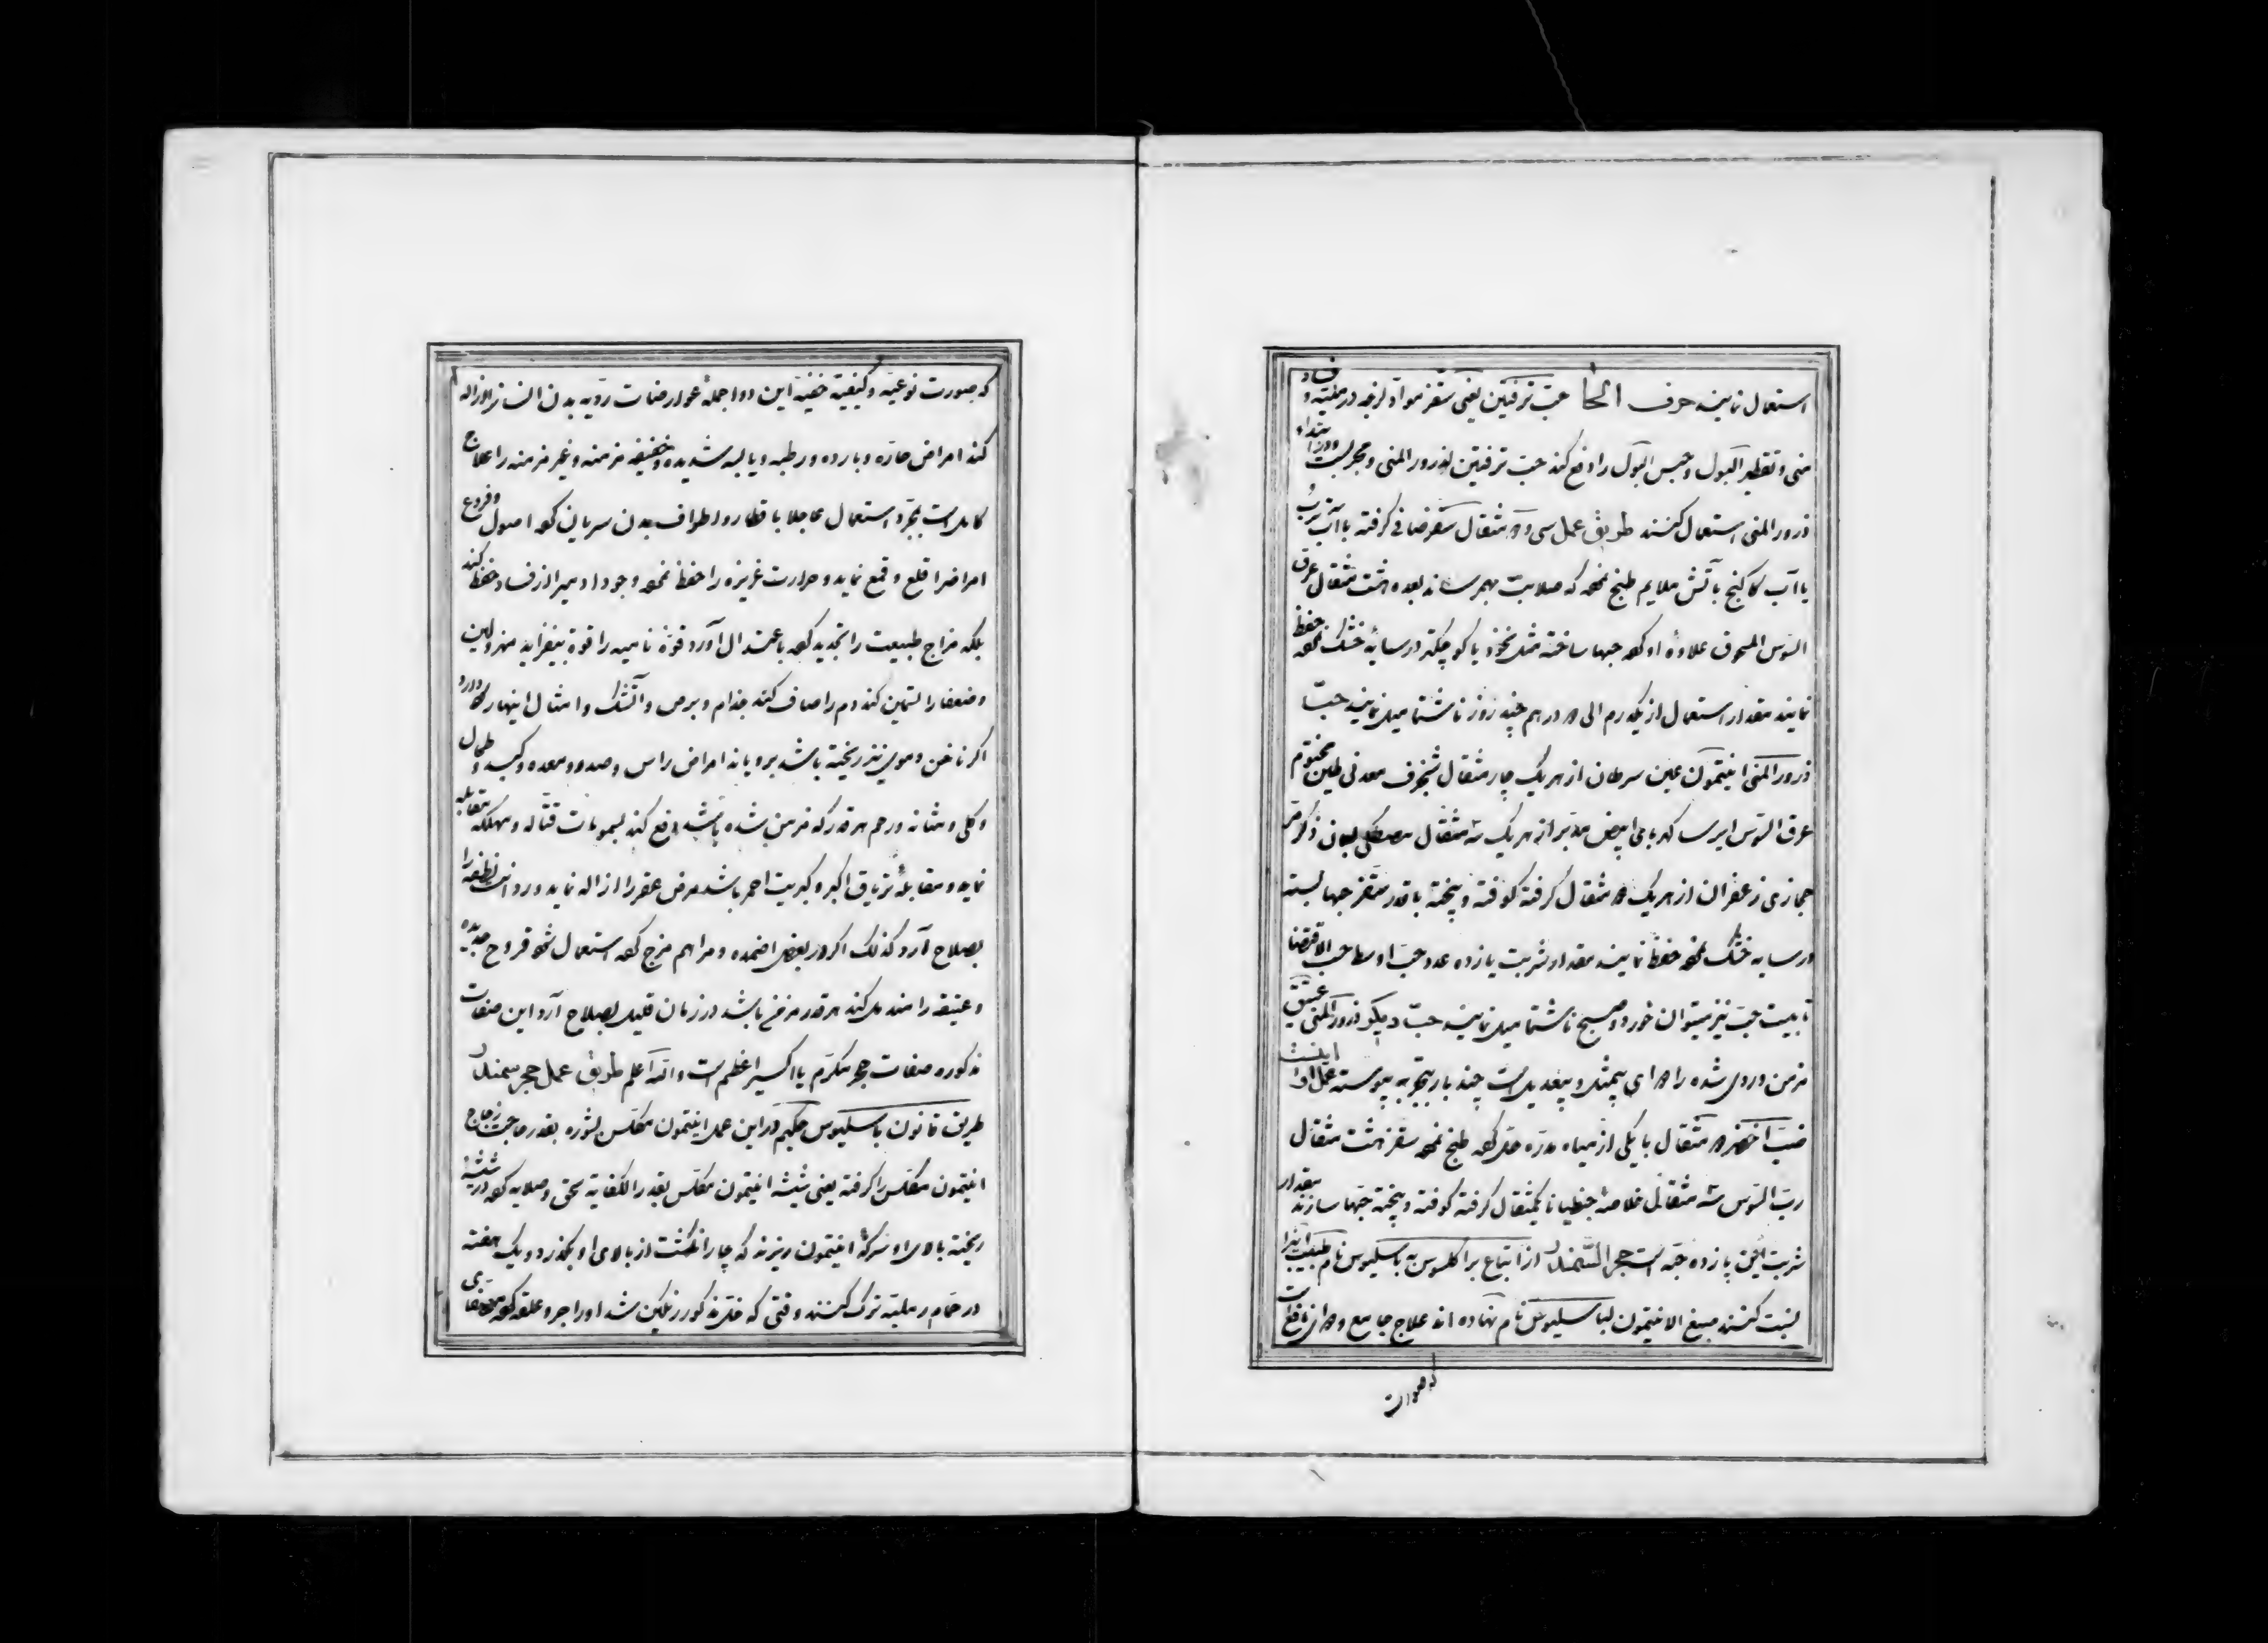 استعمال نمایند حرف الحا حب ترفتین یعنی سقز مواد لزجه در مثلیته و فساد
منی و تقطیر البول و حبس البول را دفع کند حب ترفتین لذرور المنی و مجربست در ابتداء
ذرور المنی استعمال کنند طریق عمل سی و دو مثقال سقز صافی گرفته با آب ترب
یا آب کاکنج بآتش ملایم طبخ نموده که صلابت بهم رساند بعده هشت مثقال عرق
السوس المسحوق علاوه او کرده حبها ساخته مثل نخود یا کوچکتر در سایه خشک نموده حفظ
نمایند مقدار استعمال از یکدرم الی دو درهم چند روز ناشتا میل نمایند حب
ذرور المنی انتیمون عین سرطان از هر یک چار مثقال شنجرف معدنی طین مختوم
عرق السوس ایرسا کهربای ابیض مدبر از هر یک سه مثقال مصطکی لبان ذکر مر
حجازی زعفران از هر یک دو مثقال گرفته کوفته و پخته با قدر سقز حبها بسته
در سایه خشک نموده حفظ نمایند مقدار شربت یازده عدد حب اوسط حب الاقتضا
تا بیست حب نیز میتوان خورد و صبح ناشتا میل نمایند حب دیگر ذرور المنی عتیق
مزمن و ردی شده را دوای بیمثل و بیعدیل است چند بار بتجربه پیوسته عمل او اینست
اخضر دو مثقال با یکی از میاه مدره حل کرده طبخ نموده سقز هشت مثقال
رب السوس سه مثقال خلاصه جنطیانا یکمثقال گرفته کوفته و پخته حبها سازند مقدار
شربت یازده حبه است حجر السمندل از اتباع براکلسوس به باسلیوس نام طبیب
نسبت کنند صبغ الانتیمون لباسلیوس نام نهاده اند علاج جامع و دوای نافع است
که صورت
که صورت نوعیه و کیفیة خفیة این دوا جملهٔ عوارضات ردیه بدن انسانرا ازاله
کند امراض حاره و بارده و رطبه و یابسه شدیده و خفیفه مزمنه و غیر مزمنه را علاج
کامل است بمجرد استعمال عاجلا باقطار و اطراف بدن سریان کرده اصول و فروع
امراضرا قلع و قمع نماید و حرارت غریزه را حفظ نموده وجود ادمیرا از فساد حفظ کند
بلکه مزاج طبیعت را تجدید کرده باعتدال آورد قوة نامیه را قوة بیفزاید مهزولین
و ضعفا را تسمین کند دم را صاف کند جذام و برص و آتشک و امثال اینها را
اگر ناخن و موی نیز ریخته باشد برویاند امراض راس و صدر و معده و کبد و طحال
و کلی و مثانه و رحم هر قدر که مزمن شده باشد دفع کند بسمومات قتاله و مهلکه مقابله
نماید و مقابلهٔ تریاق اکبر و کبریت احمر باشد مرض عقر را ازاله نماید و نطفه را
بصلاح آرد کذلک اگر در بعض اضمده و مراهم مزج کرده استعمال شود قروح جدیده
و عتیقه را مندمل کند هر قدر مزمن باشد در زمان قلیل بصلاح آرد این صفات
مذکوره صفات حجر مکرم یا اکسیر اعظم است والله اعلم طریق عمل حجر سمندل
طریق قانون باسلیوس حکیم در این عمل انتیمون مکلس بشوره بقدر حاجت زجاج
انتیمون مکلس را گرفته یعنی شیشه انتیمون مکلس بقدر الکفایه سحق و صلایه کرده در شیشه
ریخته بالای او سرکهٔ انتیمون ریزند که چار انگشت از بالای او بگذرد و یک هفته
در حمام رملیه ترک کنند وقتی که خل مذکور رنگین شد اورا جر و علقه کرده